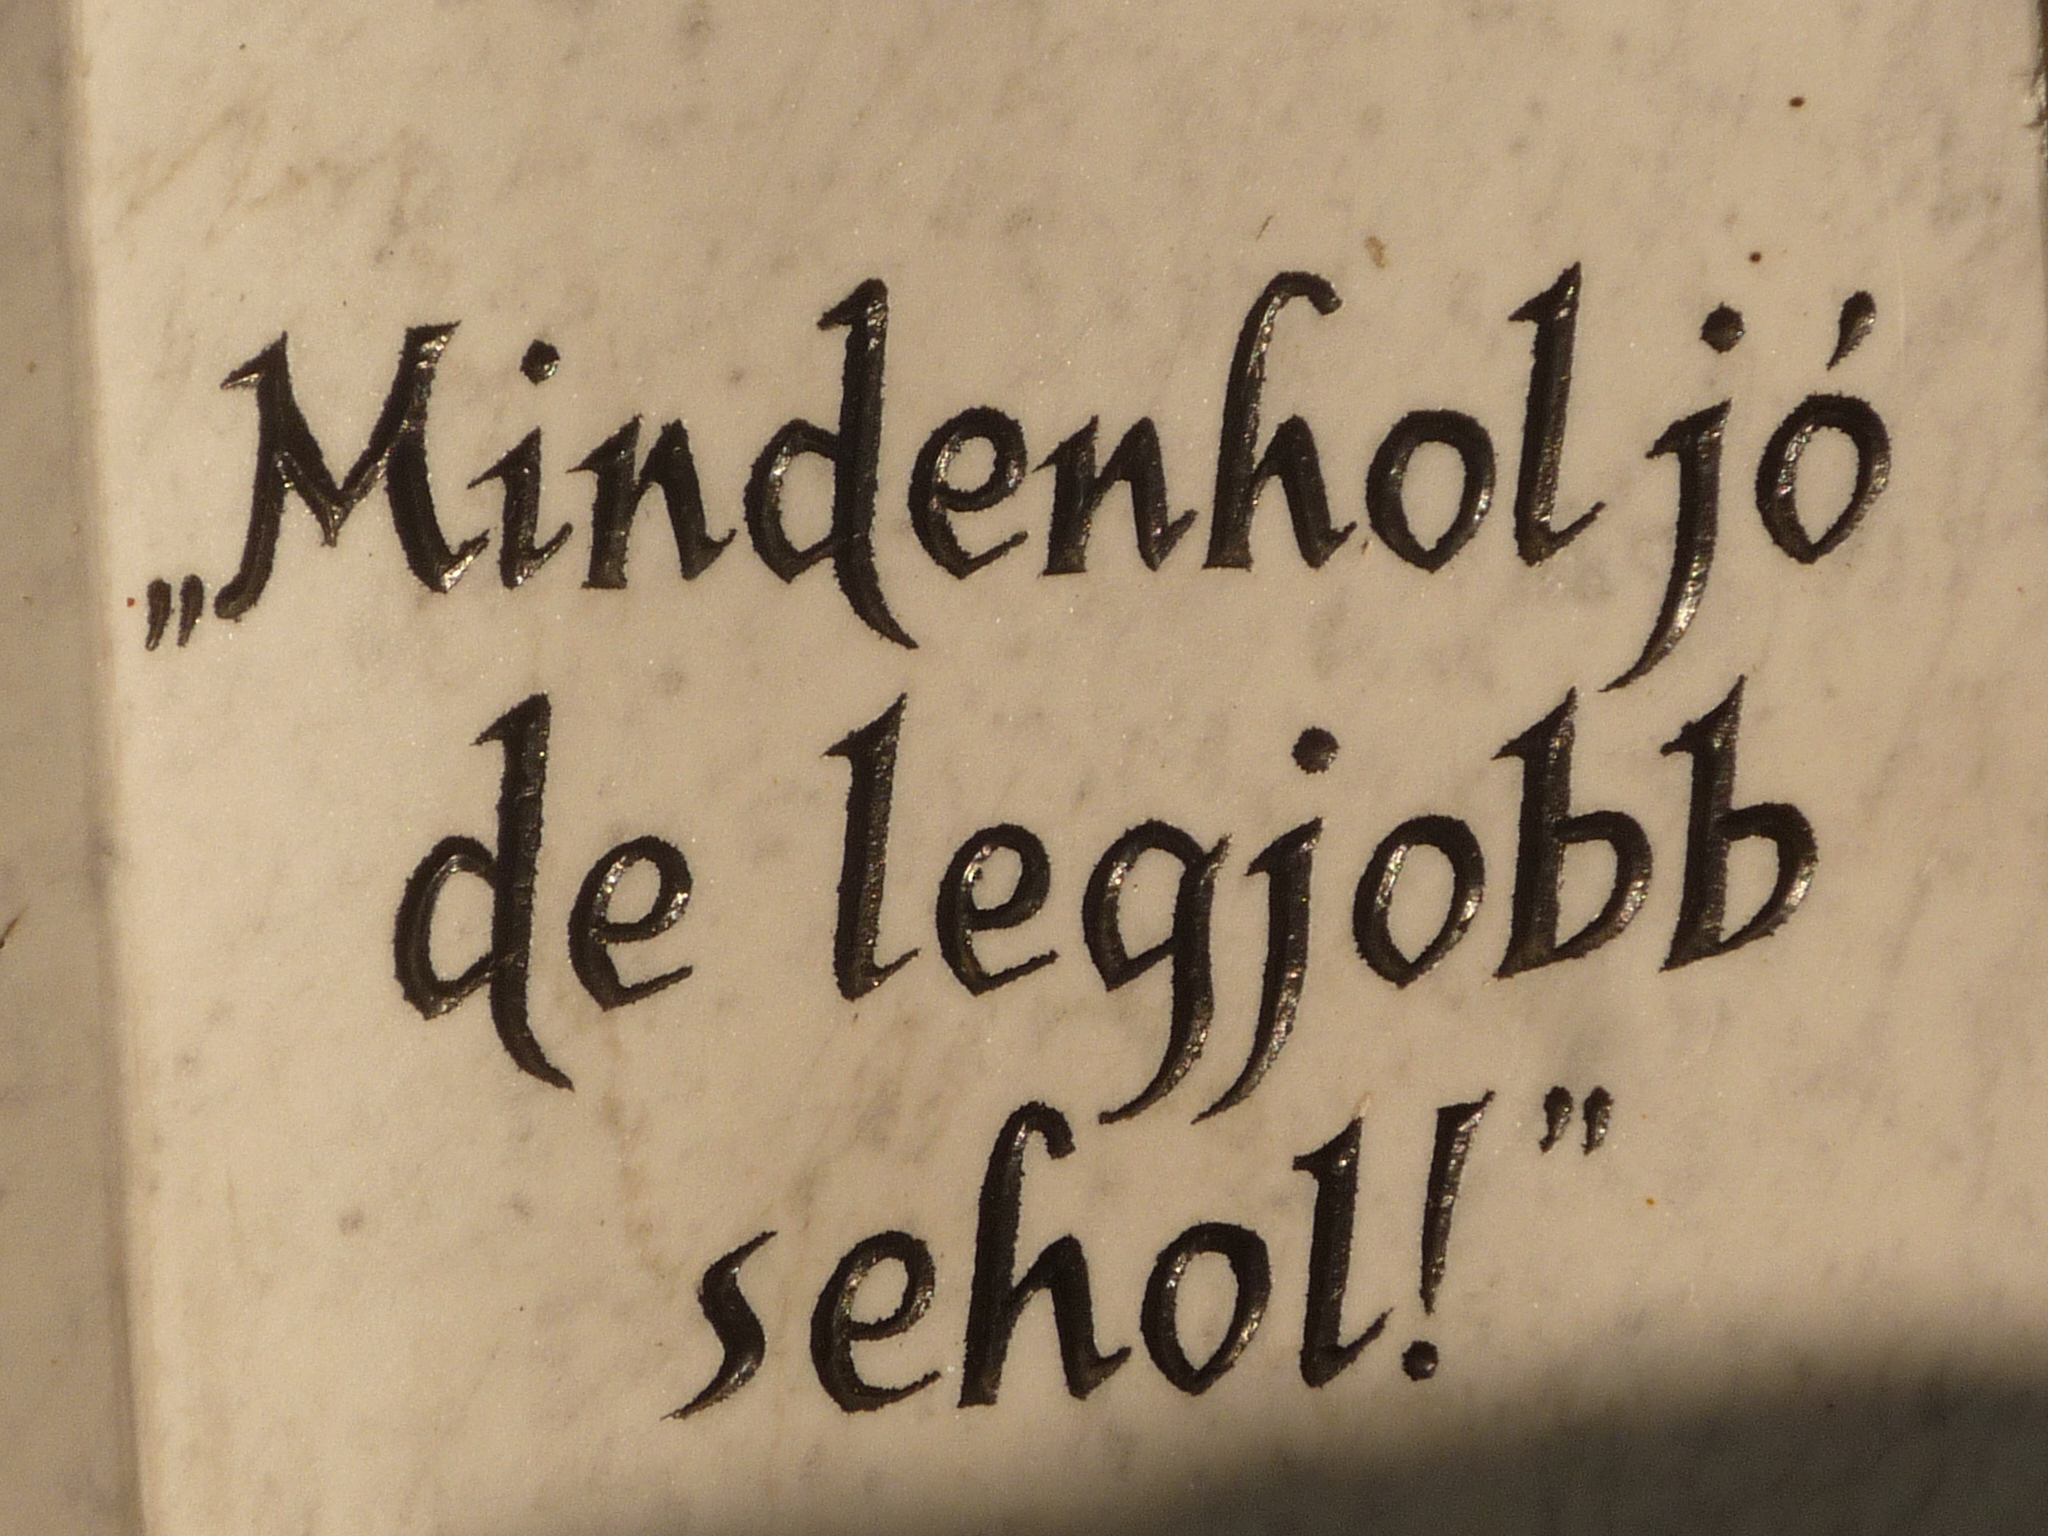 „Mindenhol jó
de legjobb
sehol!”